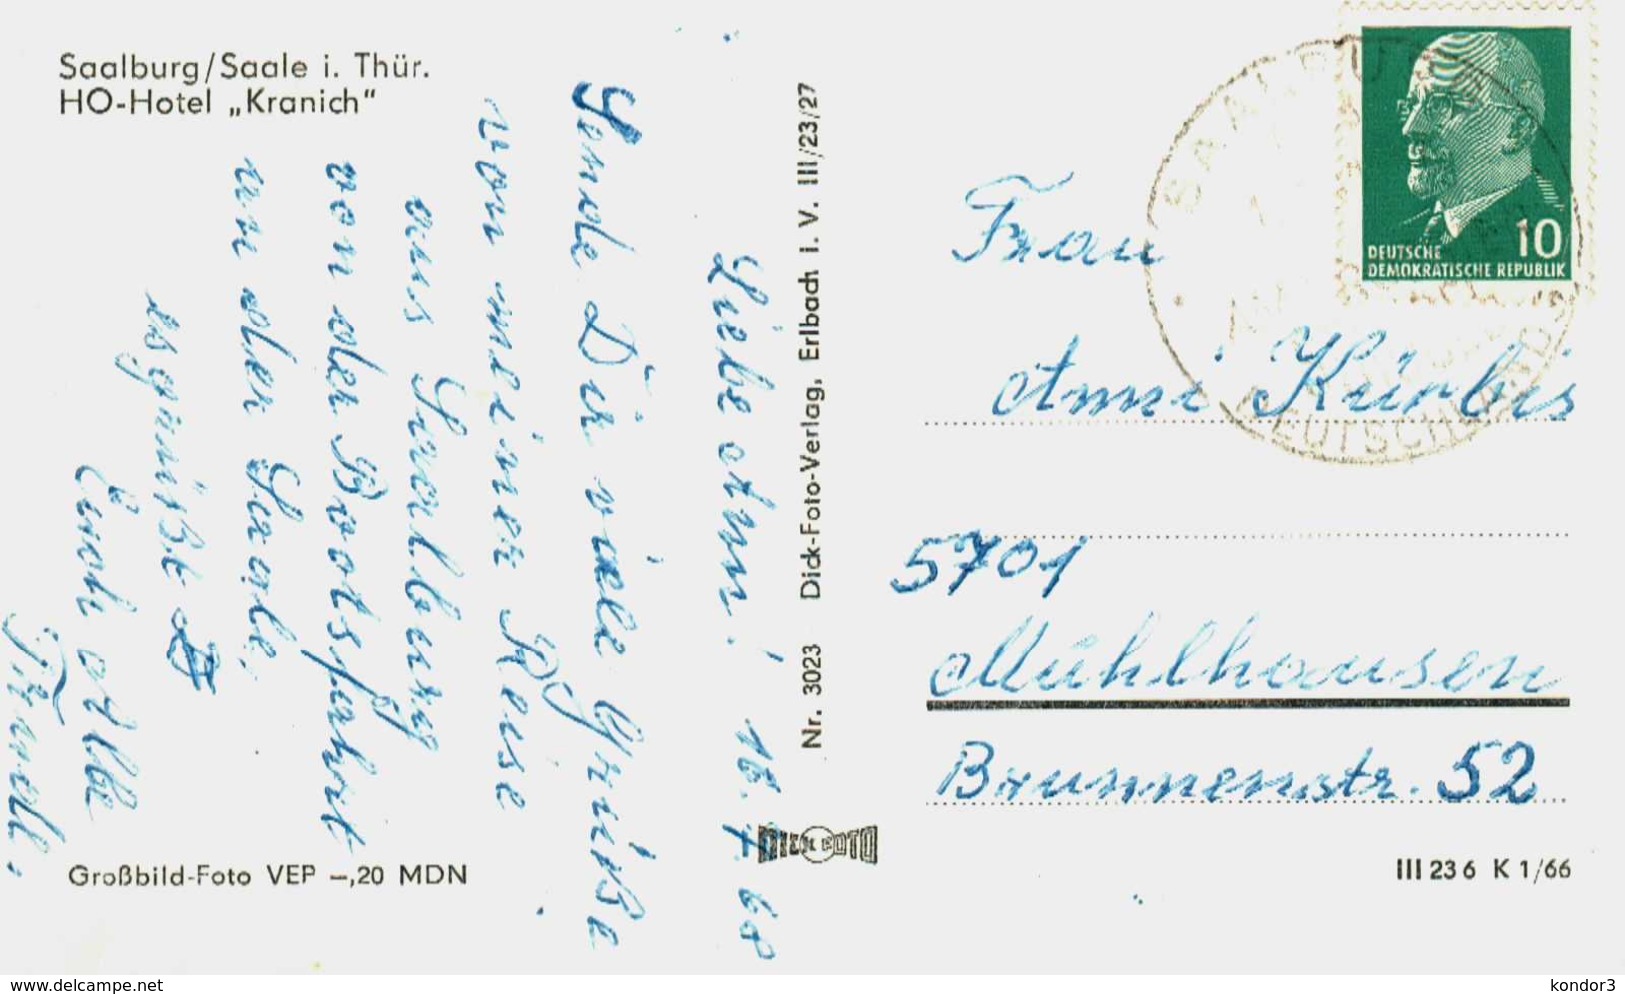 Saalburg/Saale i. Thür.
HO-Hotel „Kranich“
16. 7. 68
Liebe Anni!
Sende Dir viele Grüße
von meiner Reise
aus Saalburg
von der Bootsfahrt
an der Saale,
es grüßt
Euch alle
Nr. 3023 Dick-Foto-Verlag, Erlbach i. V. III/23/27
DICK FOTO
Großbild-Foto VEP –,20 MDN
SAALBURG
10
DEUTSCHE
DEMOKRATISCHE REPUBLIK
Frau
Anni Kürbis
5701
Mühlhausen
Brunnenstr. 52
III 23 6 K 1/66
delcampe.net
kondor3